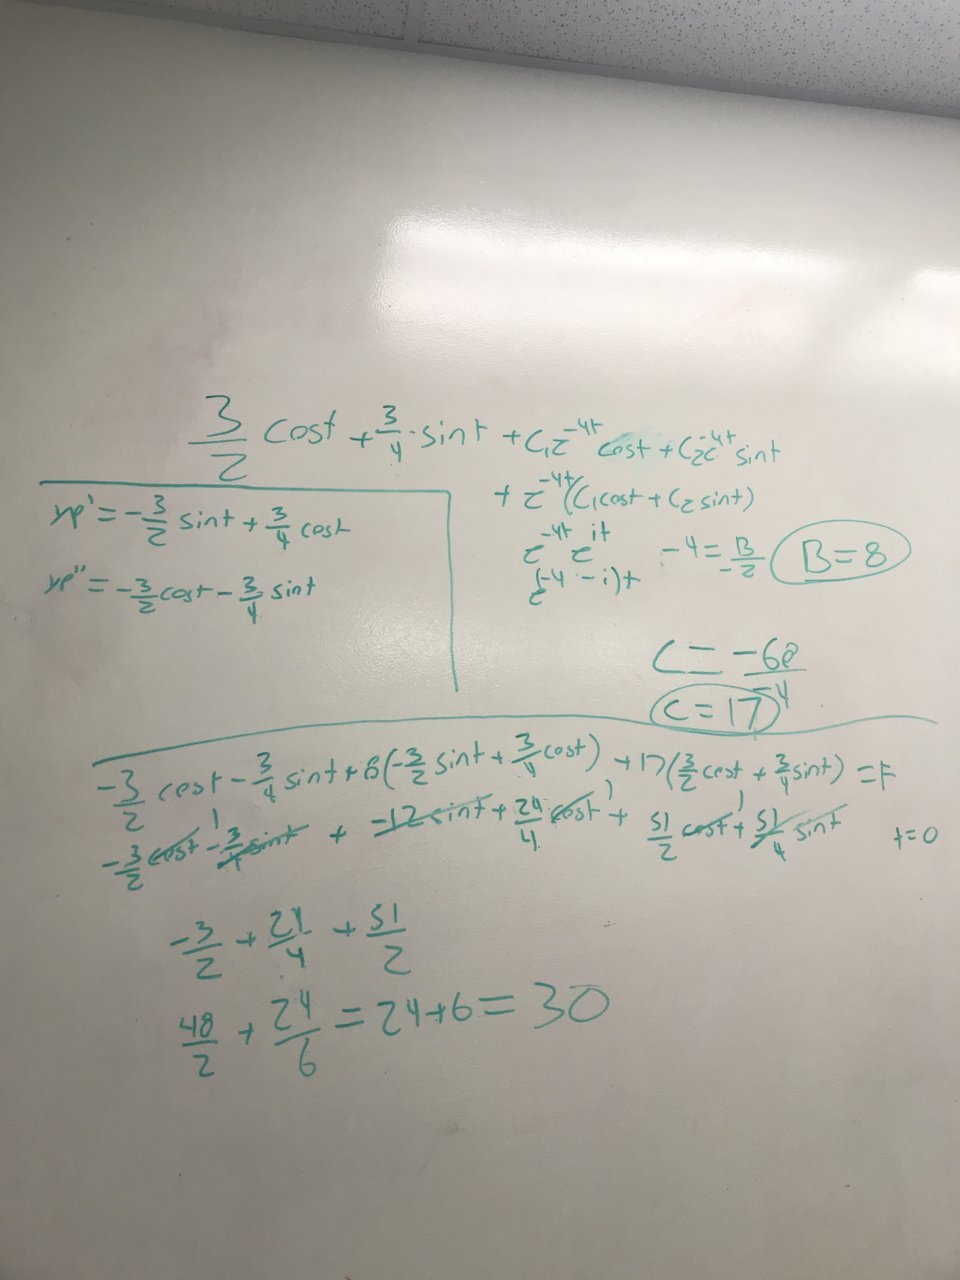 3/2 cost + 3/4 · sint + C₁e^-4t cost + C₂e^-4t sint
+ e^-4t (C₁cost + C₂ sint)
yp' = -3/2 sint + 3/4 cost
e^-4t e^it
-4 = B/-2 B=8
yp'' = -3/2 cost - 3/4 sint
e^(-4 - i)t
C = -68/-4
C = 17
-3/2 cost - 3/4 sint + 8(-3/2 sint + 3/4 cost) + 17(3/2 cost + 3/4 sint) = F
-3/2 cost - 3/4 sint + -12 sint + 24/4 cost + 51/2 cost + 51/4 sint t=0
-3/2 + 24/4 + 51/2
48/2 + 24/6 = 24+6 = 30